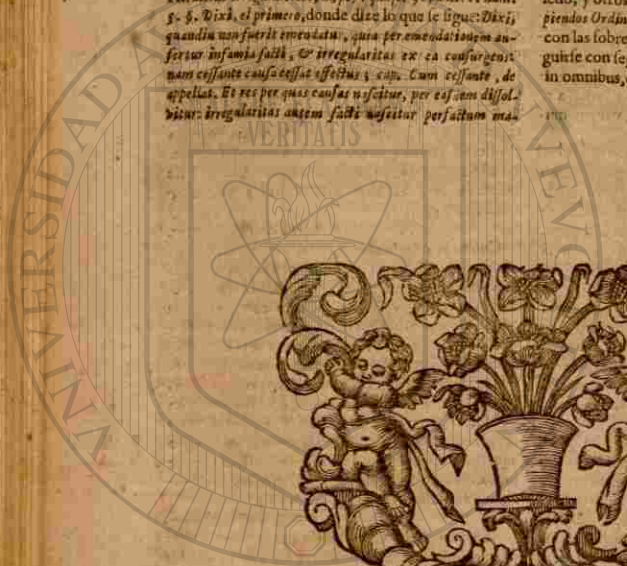 §. §. Dixi, el primero, donde dize lo que se sigue: Dixi,
quandiu non fuerit emendatu, quia per emendationem au-
fertur infamia facti, & irregularitas ex ea consurgens:
nam cessante causa cessat effectus; cap. Cum cessante, de
appellat. Et res per quas causas nascitur, per easdem dissol-
vitur: irregularitas autem facti nascitur per factum ma-
piendos Ordin
con las sobre
guirse con se
in omnibus,
VERITATIS
UNIVERSIDAD A
NUEVO